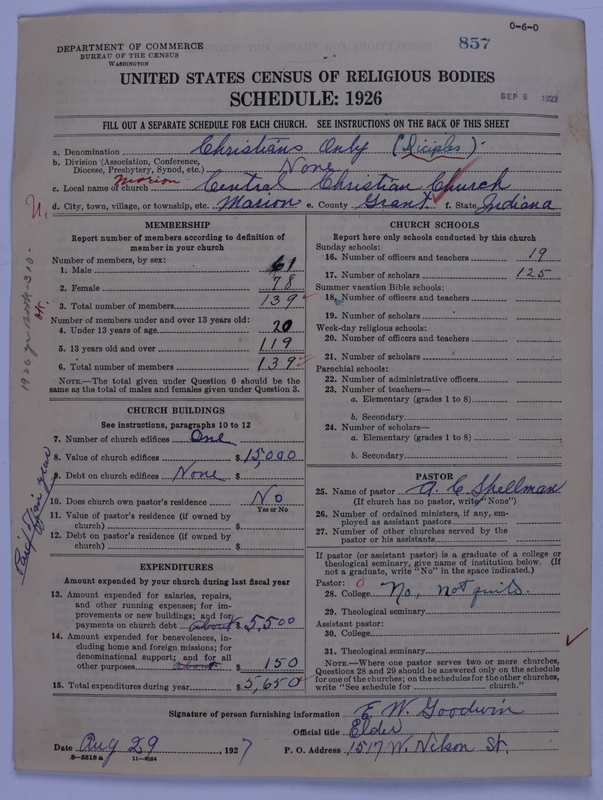 0-6-0
857
DEPARTMENT OF COMMERCE
BUREAU OF THE CENSUS
WASHINGTON
UNITED STATES CENSUS OF RELIGIOUS BODIES
SCHEDULE: 1926
SEP 8 1927
FILL OUT A SEPARATE SCHEDULE FOR EACH CHURCH. SEE INSTRUCTIONS ON THE BACK OF THIS SHEET
a. Denomination Christians Only (Diciples)
b. Division (Association, Conference, Diocese, Presbytery, Synod, etc.) None
Marion
c. Local name of church Central Christian Church
d. City, town, village, or township, etc. Marion e. County Grant f. State Indiana
MEMBERSHIP
Report number of members according to definition of member in your church
Number of members, by sex:
1. Male 61
2. Female 78
3. Total number of members 139
Number of members under and over 13 years old:
4. Under 13 years of age 20
5. 13 years old and over 119
6. Total number of members 139
NOTE.—The total given under Question 6 should be the same as the total of males and females given under Question 3.
CHURCH BUILDINGS
See instructions, paragraphs 10 to 12
7. Number of church edifices One
8. Value of church edifices $15,000
9. Debt on church edifices None
10. Does church own pastor's residence No
Yes or No
11. Value of pastor's residence (if owned by church) $
12. Debt on pastor's residence (if owned by church) $
EXPENDITURES
Amount expended by your church during last fiscal year
13. Amount expended for salaries, repairs, and other running expenses; for improvements or new buildings; and for payments on church debt about $5,500
14. Amount expended for benevolences, including home and foreign missions; for denominational support; and for all other purposes about $150
15. Total expenditures during year $5,650
CHURCH SCHOOLS
Report here only schools conducted by this church
Sunday schools:
16. Number of officers and teachers 19
17. Number of scholars 125
Summer vacation Bible schools:
18. Number of officers and teachers
19. Number of scholars
Week-day religious schools:
20. Number of officers and teachers
21. Number of scholars
Parochial schools:
22. Number of administrative officers
23. Number of teachers—
a. Elementary (grades 1 to 8)
b. Secondary
24. Number of scholars—
a. Elementary (grades 1 to 8)
b. Secondary
PASTOR
25. Name of pastor A. C. Spellman
(If church has no pastor, write "None")
26. Number of ordained ministers, if any, employed as assistant pastors
27. Number of other churches served by the pastor or his assistants
If pastor (or assistant pastor) is a graduate of a college or theological seminary, give name of institution below. (If not a graduate, write "No" in the space indicated.)
Pastor:
28. College No, not quite.
29. Theological seminary
Assistant pastor:
30. College
31. Theological seminary
NOTE.—Where one pastor serves two or more churches, Questions 28 and 29 should be answered only on the schedule for one of the churches; on the schedules for the other churches, write "See schedule for church."
Signature of person furnishing information E. W. Goodwin
Official title Elder
Date Aug 29, 1927 P. O. Address 1517 W. Nelson St.
8-5518 a 11-9034